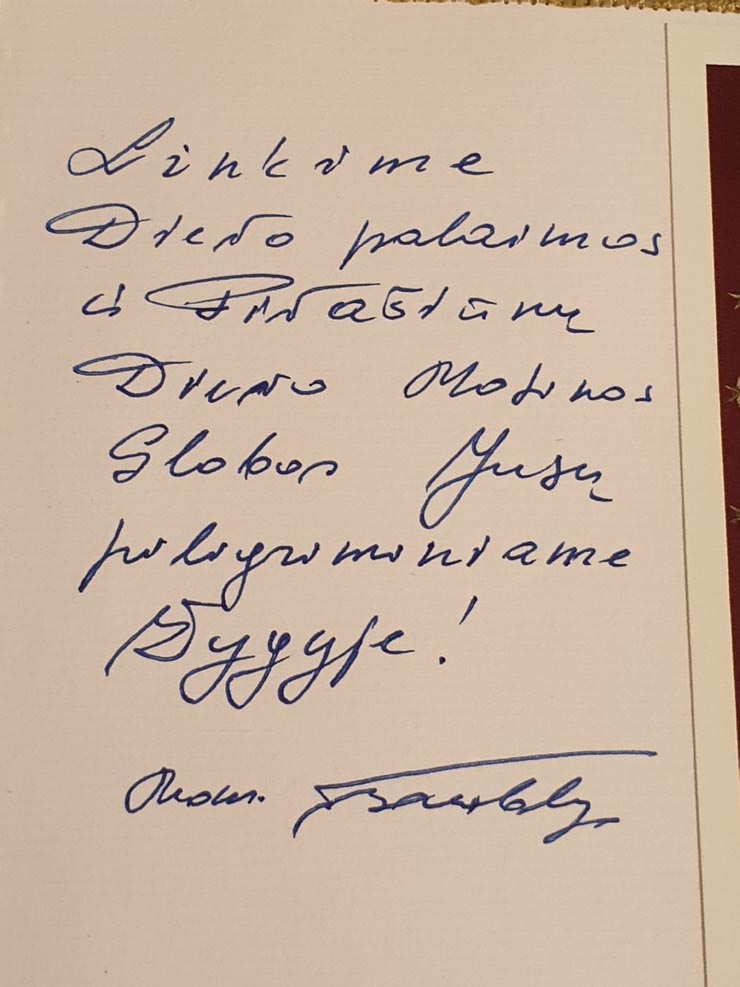 Linkime
Dievo palaimos
ir Pivašiūnų
Dievo Motinos
Globos Jūsų
piligriminiame
Žygyje!